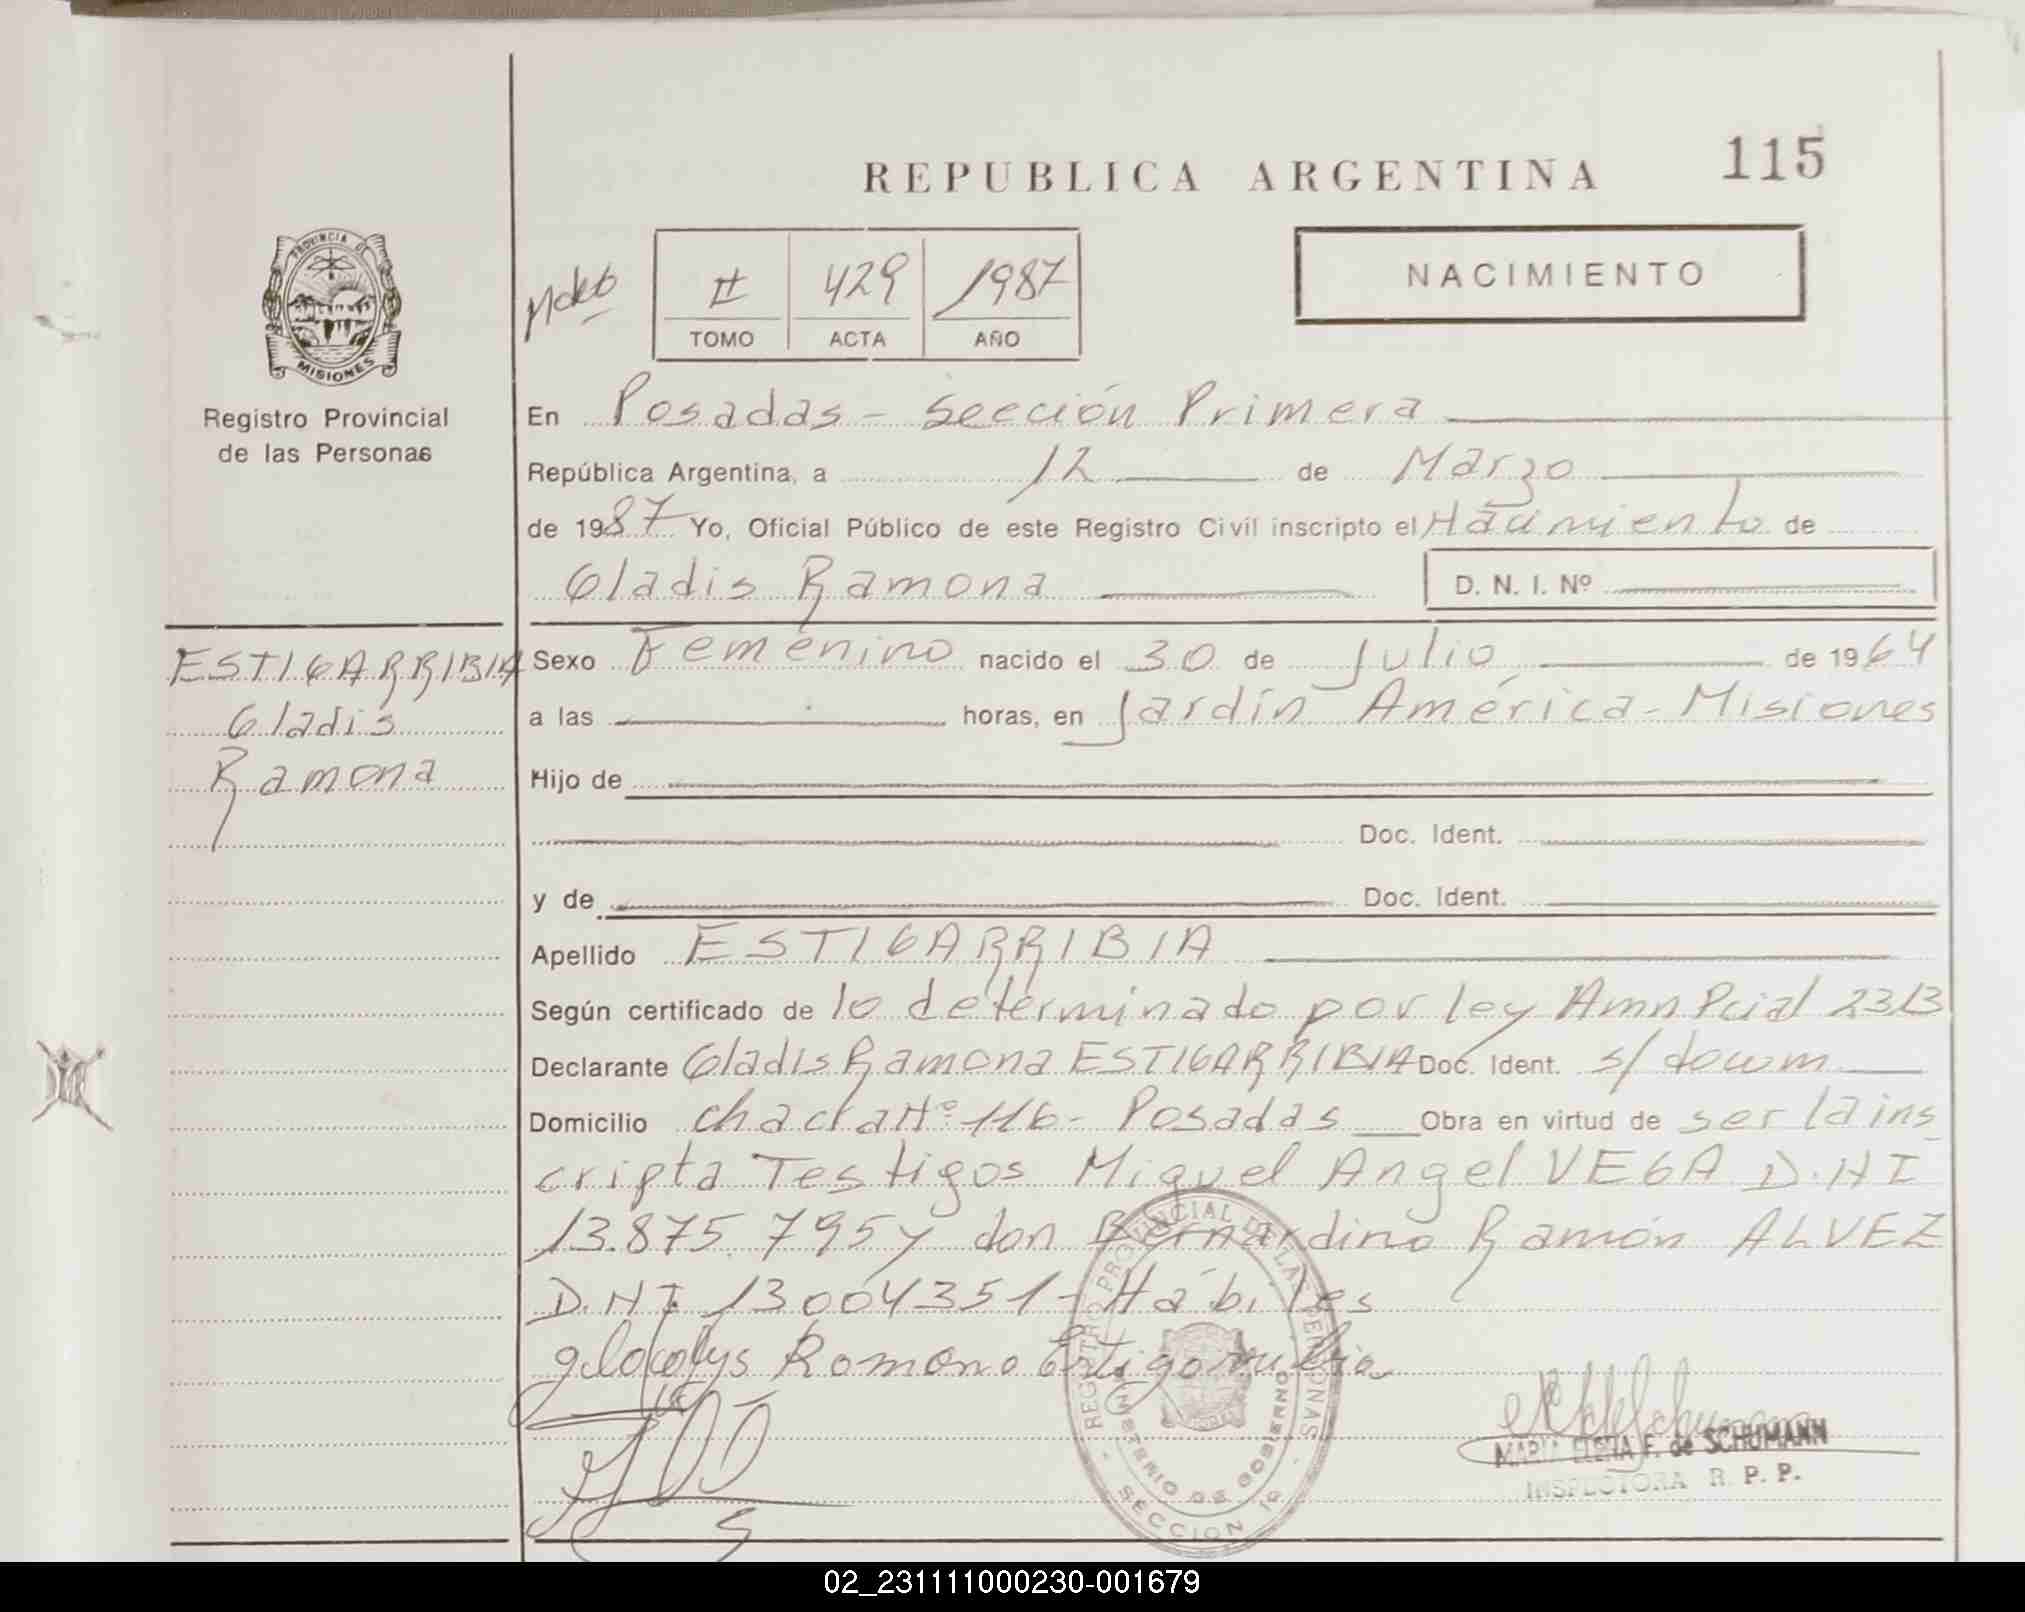 REPUBLICA ARGENTINA 115
PROVINCIA DE MISIONES
Registro Provincial
de las Personas
II 429 1987
TOMO ACTA AÑO
NACIMIENTO
En Posadas - Sección Primera
República Argentina, a 12 de Marzo
de 1987 Yo, Oficial Público de este Registro Civil inscripto el Nacimiento de
Gladis Ramona D. N. I. Nº
ESTIGARRIBIA
Gladis
Ramona
Sexo Femenino nacido el 30 de Julio de 1964
a las horas, en Jardín América - Misiones
Hijo de
Doc. Ident.
y de Doc. Ident.
Apellido ESTIGARRIBIA
Según certificado de lo determinado por ley Amn Pcial 2313
Declarante Gladis Ramona ESTIGARRIBIA Doc. Ident. s/ docum
Domicilio chacra Nº 116 - Posadas Obra en virtud de ser la ins
cripta Testigos Miguel Angel VEGA D.N.I
13.875.795 y don Bernardino Ramón ALVEZ
D.N.I. 13004351 - Hábiles
gladys Ramona Estigarribia
REGISTRO PROVINCIAL DE LAS PERSONAS
MINISTERIO DE GOBIERNO
SECCION 1º
MARIA ELENA F. de SCHUMANN
INSPECTORA R. P. P.
02_231111000230-001679